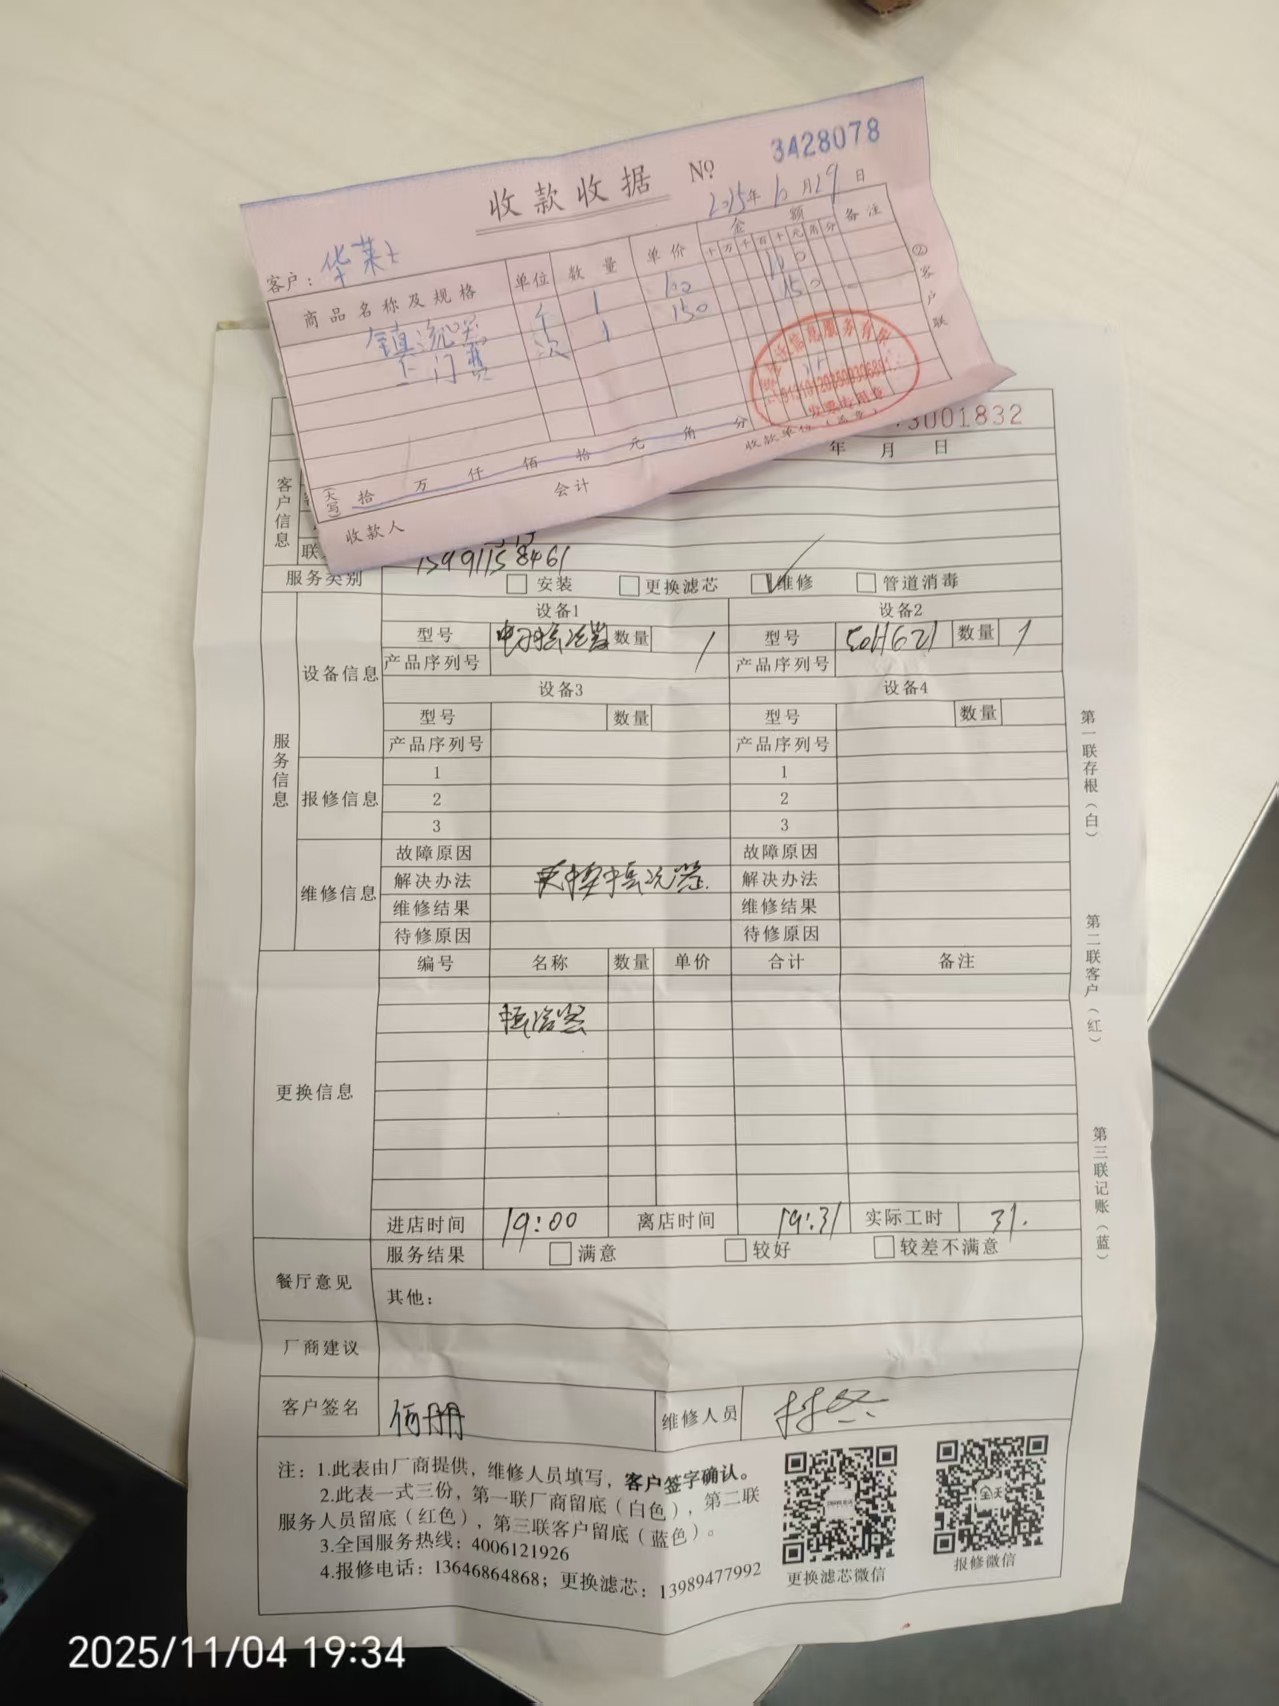 收款收据 № 3428078
2025年10月29日
客户：华莱士
商品名称及规格 单位 数量 单价 金额 备注
十 万 千 百 十 元 角 分
镇流器 个 1 100 100
上门费 次 1 150 150
②客户联
发票专用章
(大写) 拾 万 仟 佰 拾 元 角 分
收款单位（盖章）
收款人 会计
3001832
年 月 日
客户信息
15991158461
服务类别 安装 更换滤芯 维修 管道消毒
服务信息
设备信息
设备1 设备2
型号 数量 1 型号 数量 1
产品序列号 产品序列号
设备3 设备4
型号 数量 型号 数量
产品序列号 产品序列号
报修信息
1 1
2 2
3 3
维修信息
故障原因 故障原因
解决办法 更换镇流器 解决办法
维修结果 维修结果
待修原因 待修原因
更换信息
编号 名称 数量 单价 合计 备注
进店时间 19:00 离店时间 19:31 实际工时 31.
餐厅意见
服务结果 满意 较好 较差不满意
其他：
厂商建议
客户签名 维修人员
第一联存根（白）
第二联客户（红）
第三联记账（蓝）
注：1.此表由厂商提供，维修人员填写，客户签字确认。
2.此表一式三份，第一联厂商留底（白色），第二联
服务人员留底（红色），第三联客户留底（蓝色）。
3.全国服务热线：4006121926
4.报修电话：13646864868；更换滤芯：13989477992
更换滤芯微信 报修微信
2025/11/04 19:34